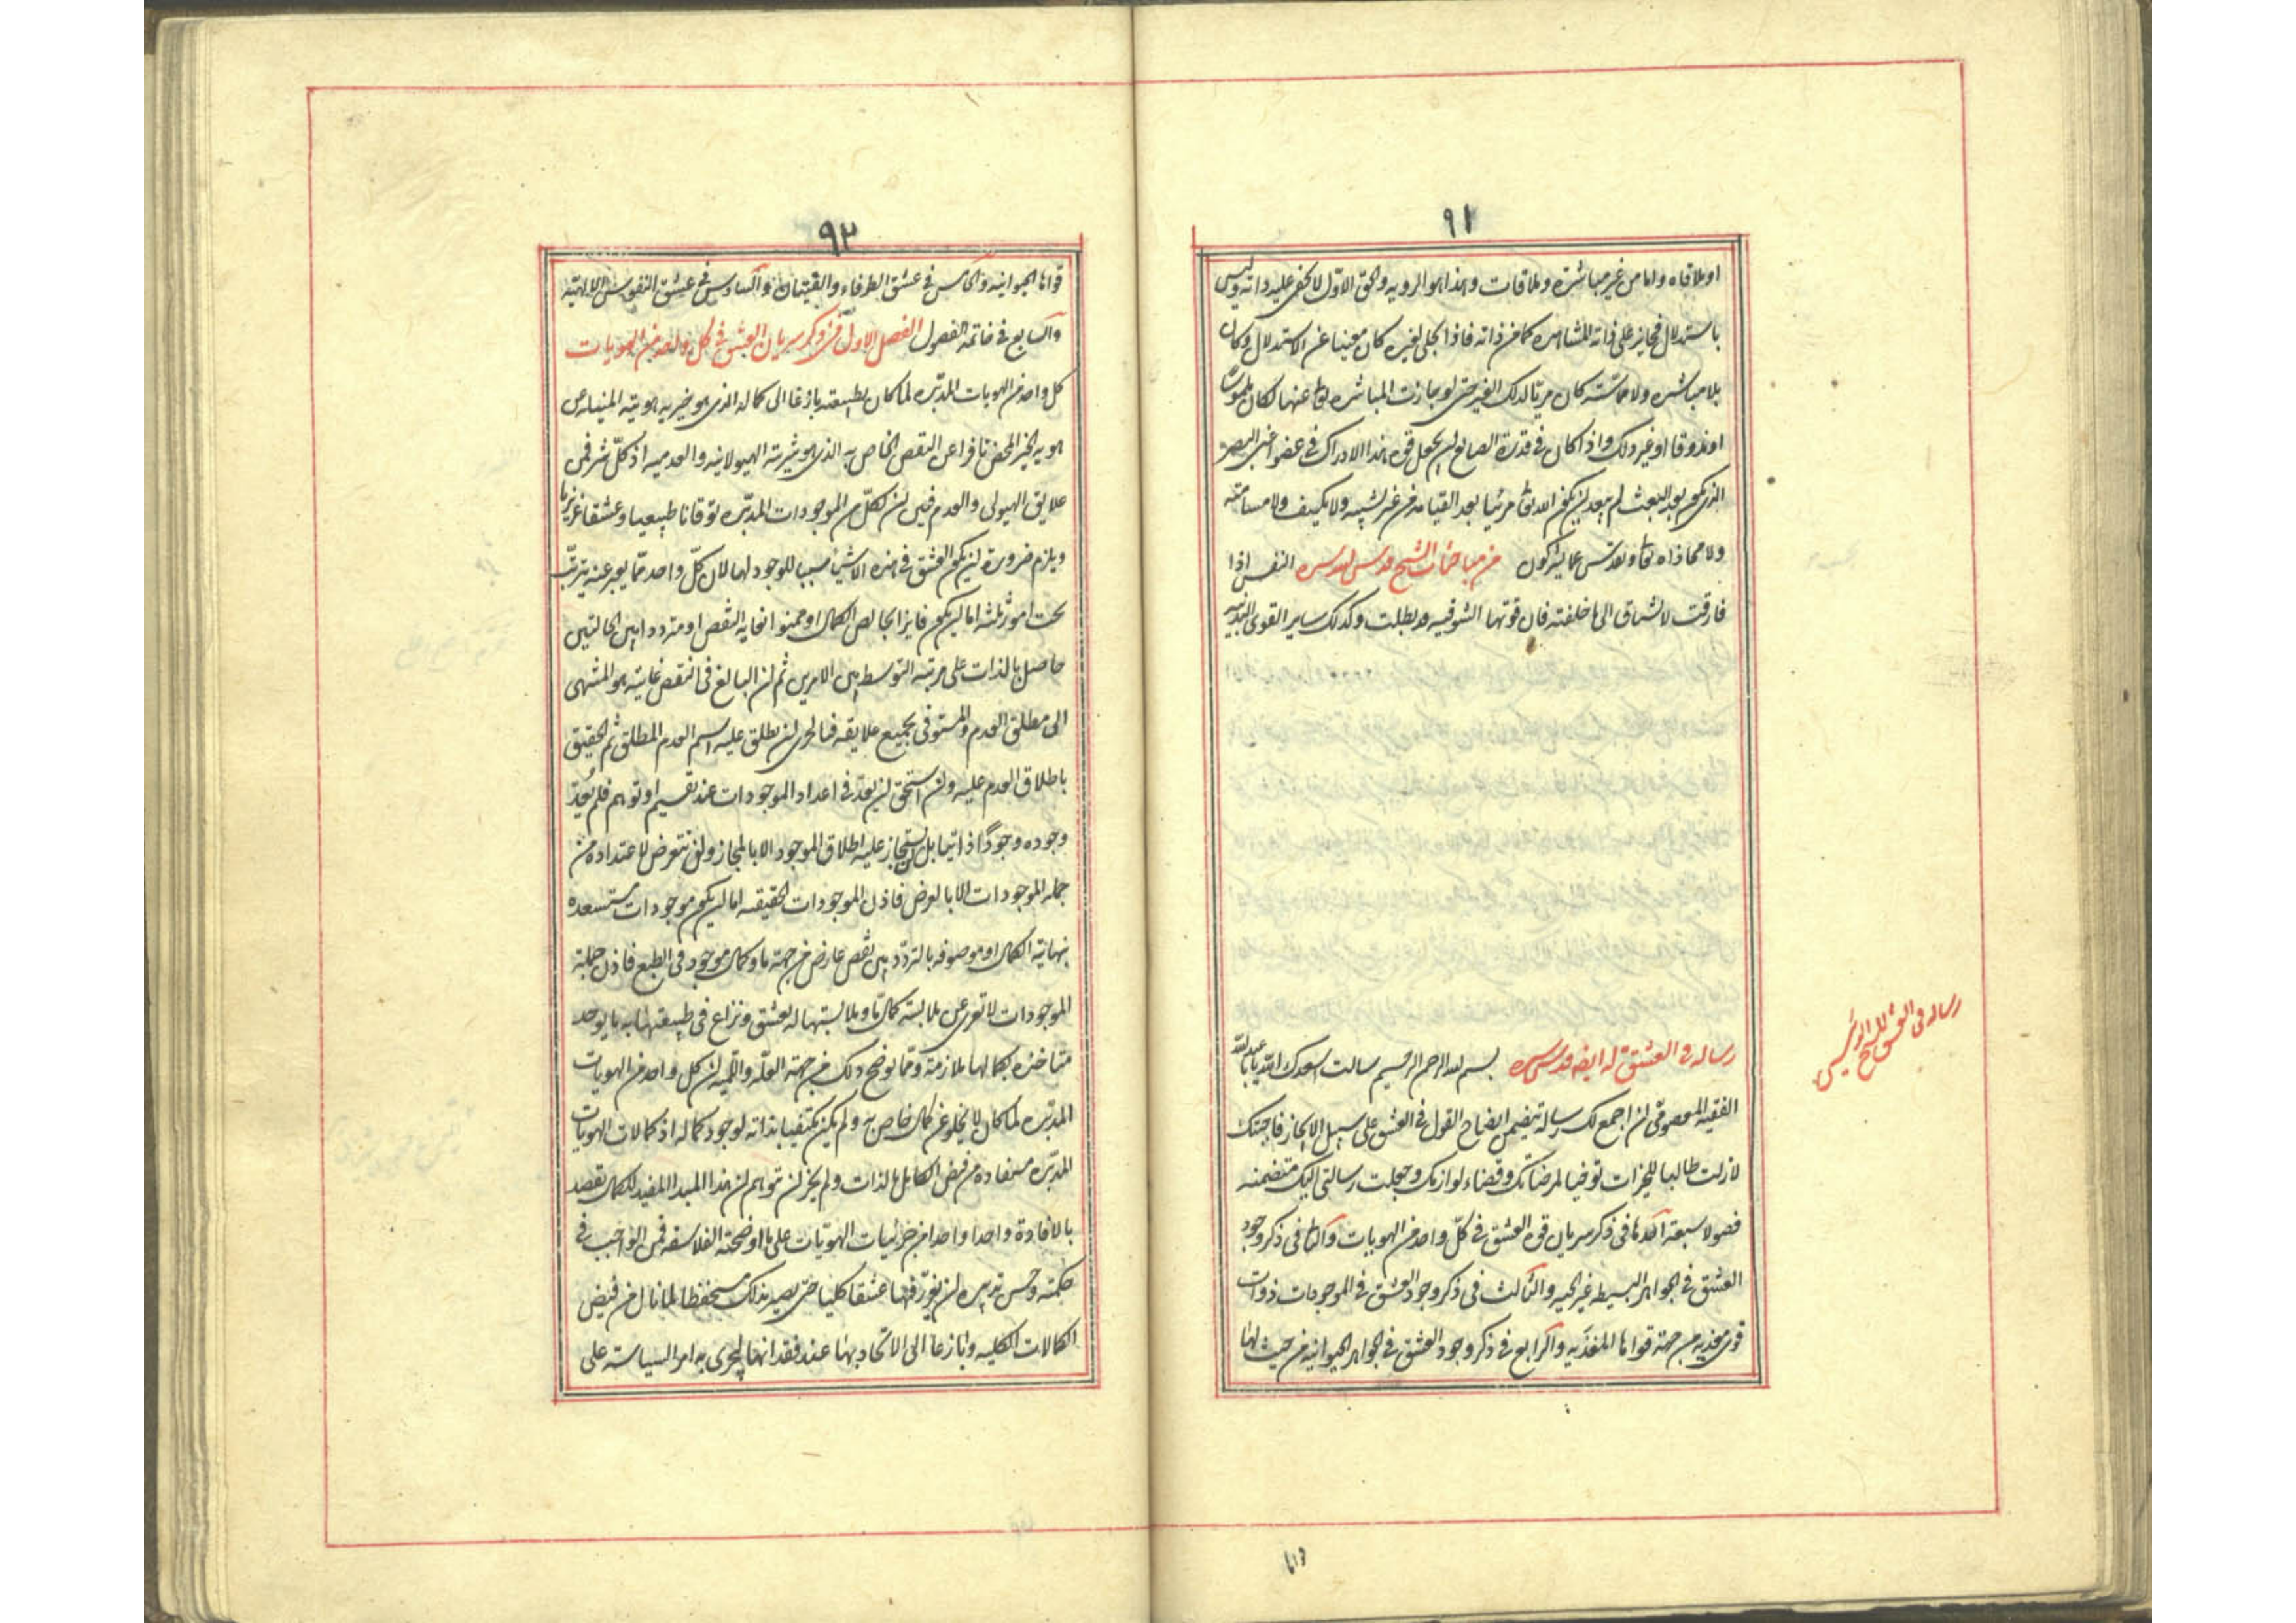 ٩١
او ملاقاه واما من غير مباشرة وملاقات وهذا هو الرويه والحق الاول لا يخفى عليه ذاته وليس
باستدلال فجايز على ذاته المشاهره كما من ذاته فاذا تجلى لغيره كان مغنيا عن الاستدلال وكان
بلا مباشره ولا مماسته كان مرئيا لذلك الغير حتى لو جازت المباشره تعا عنها لكان ملموسا
او مذوقا او غير ذلك واذا كان في قدرة الصانع ان يجعل قوه هذا الادراك في عضو اعنى البصر
الذى يكون بعد البعث لم يبعد ان يكون الله تعا مرئيا بعد القيامه من غير تشبيه ولا تكييف ولا مسامته
ولا محاذاه تعا وتقدس عما يشركون من مباحثات الشيخ قدس الله سره النفس اذا
فارقت لا تشتاق الى ما خلفته فان قوتها الشوقيه قد بطلت وكذلك ساير القوى البدنيه
رساله فى العشق للشيخ الرئيس
رساله فى العشق له ايضا قدس سره بسم الله الرحمن الرحيم سالت اسعدك الله يا عبد الله
الفقيه المعصومى ان اجمع لك رسالة تتضمن ايضاح القول فى العشق على سبيل الايجاز فاجبتك
لازلت طالبا للخيرات توخيا لمرضاتك وقضاء لوازمك وجعلت رسالتى اليك متضمنه
فصولا سبعة احدها فى ذكر سريان قوه العشق فى كل واحد من الهويات والثانى فى ذكر وجود
العشق فى الجواهر البسيطه غير الحيه والثالث فى ذكر وجود العشق فى الموجودات ذوات
قوى مغذيه من جهة قواها المغذيه والرابع فى ذكر وجود العشق فى الجواهر الحيوانيه من حيث لها
٩٢
قواها الحيوانيه والخامس فى عشق الظرفاء والفتيان والسادس فى عشق النفوس الالهيّة
والسابع فى خاتمة الفصول الفصل الاول فى ذكر سريان العشق فى كل واحد من الهويات
كل واحد من الهويات المدبّره لما كان بطبيعته نازعا الى كماله الذى هو خيريه هويته المنيله عن
هويه الخير المحض نافرا عن النقص الخاص به الذى هو شريته الهيولانيه والعدميه اذ كلّ شر فمن
علايق الهيولى والعدم فبين ان لكلّ من الموجودات المدبّره توقانا طبيعيا وعشقا غريزيا
ويلزم ضرورة ان يكون العشق فى هذه الاشياء سببا للوجود لها لان كلّ واحد ممّا يعبر عنه يترتّب
تحت امور ثلثه اما ان يكون فايزا بخالص الكمال او ممنوا بغايه النقص او مترددا بين الحالتين
حاصل بالذات على مرتبة التوسط بين الامرين ثم ان البالغ فى النقص غايته هو المنتهى
الى مطلق العدم والمستوفى بجميع علايقه فبالحرى ان يطلق عليه اسم العدم المطلق ثم الحقيق
باطلاق العدم عليه وان استحق ان يعدّ فى اعداد الموجودات عند تقسيم او توهم فلم يعدّ
وجوده وجودًا ذاتيا بل لن يستجاز عليه اطلاق الموجود الا بالمجاز ولن يتعرض لاعتداده من
جمله الموجودات الا بالعرض فاذن الموجودات الحقيقه اما ان يكون موجودات مستسعده
بنهاية الكمال او موصوفه بالتردّد بين نقص عارض من جهة ما وكمال موجود فى الطبع فاذن جملة
الموجودات لا تعرى عن ملابسة كمال ما وملابستها له بعشق ونزاع فى طبيعتها به ما يوحد
متاحده بكمالها ملازمة وممّا يوضح ذلك من جهة العلّه واللّميه ان كل واحد من الهويات
المدبّره لما كان لا يخلو عن كمال خاص به ولم يكن مكتفيا بذاته لوجود كماله اذ كمالات الهويات
المدبّره مستفاده من فيض الكامل بالذات ولم يجز ان توهم ان هذا المبدا المفيد للكمال تقصد
بالافادة واحدا واحدا من جزئيات الهويّات على ما اوضحته الفلاسفه فمن الواجب فى
حكمته وحسن تدبيره ان يغرّز فيها عشقا كليا حتى يصير بذلك مستحفظا لما نال من فيض
الكمالات الكليه ونازعا الى الاتحاد بها عند فقدانها ليجرى به امر السياسة على